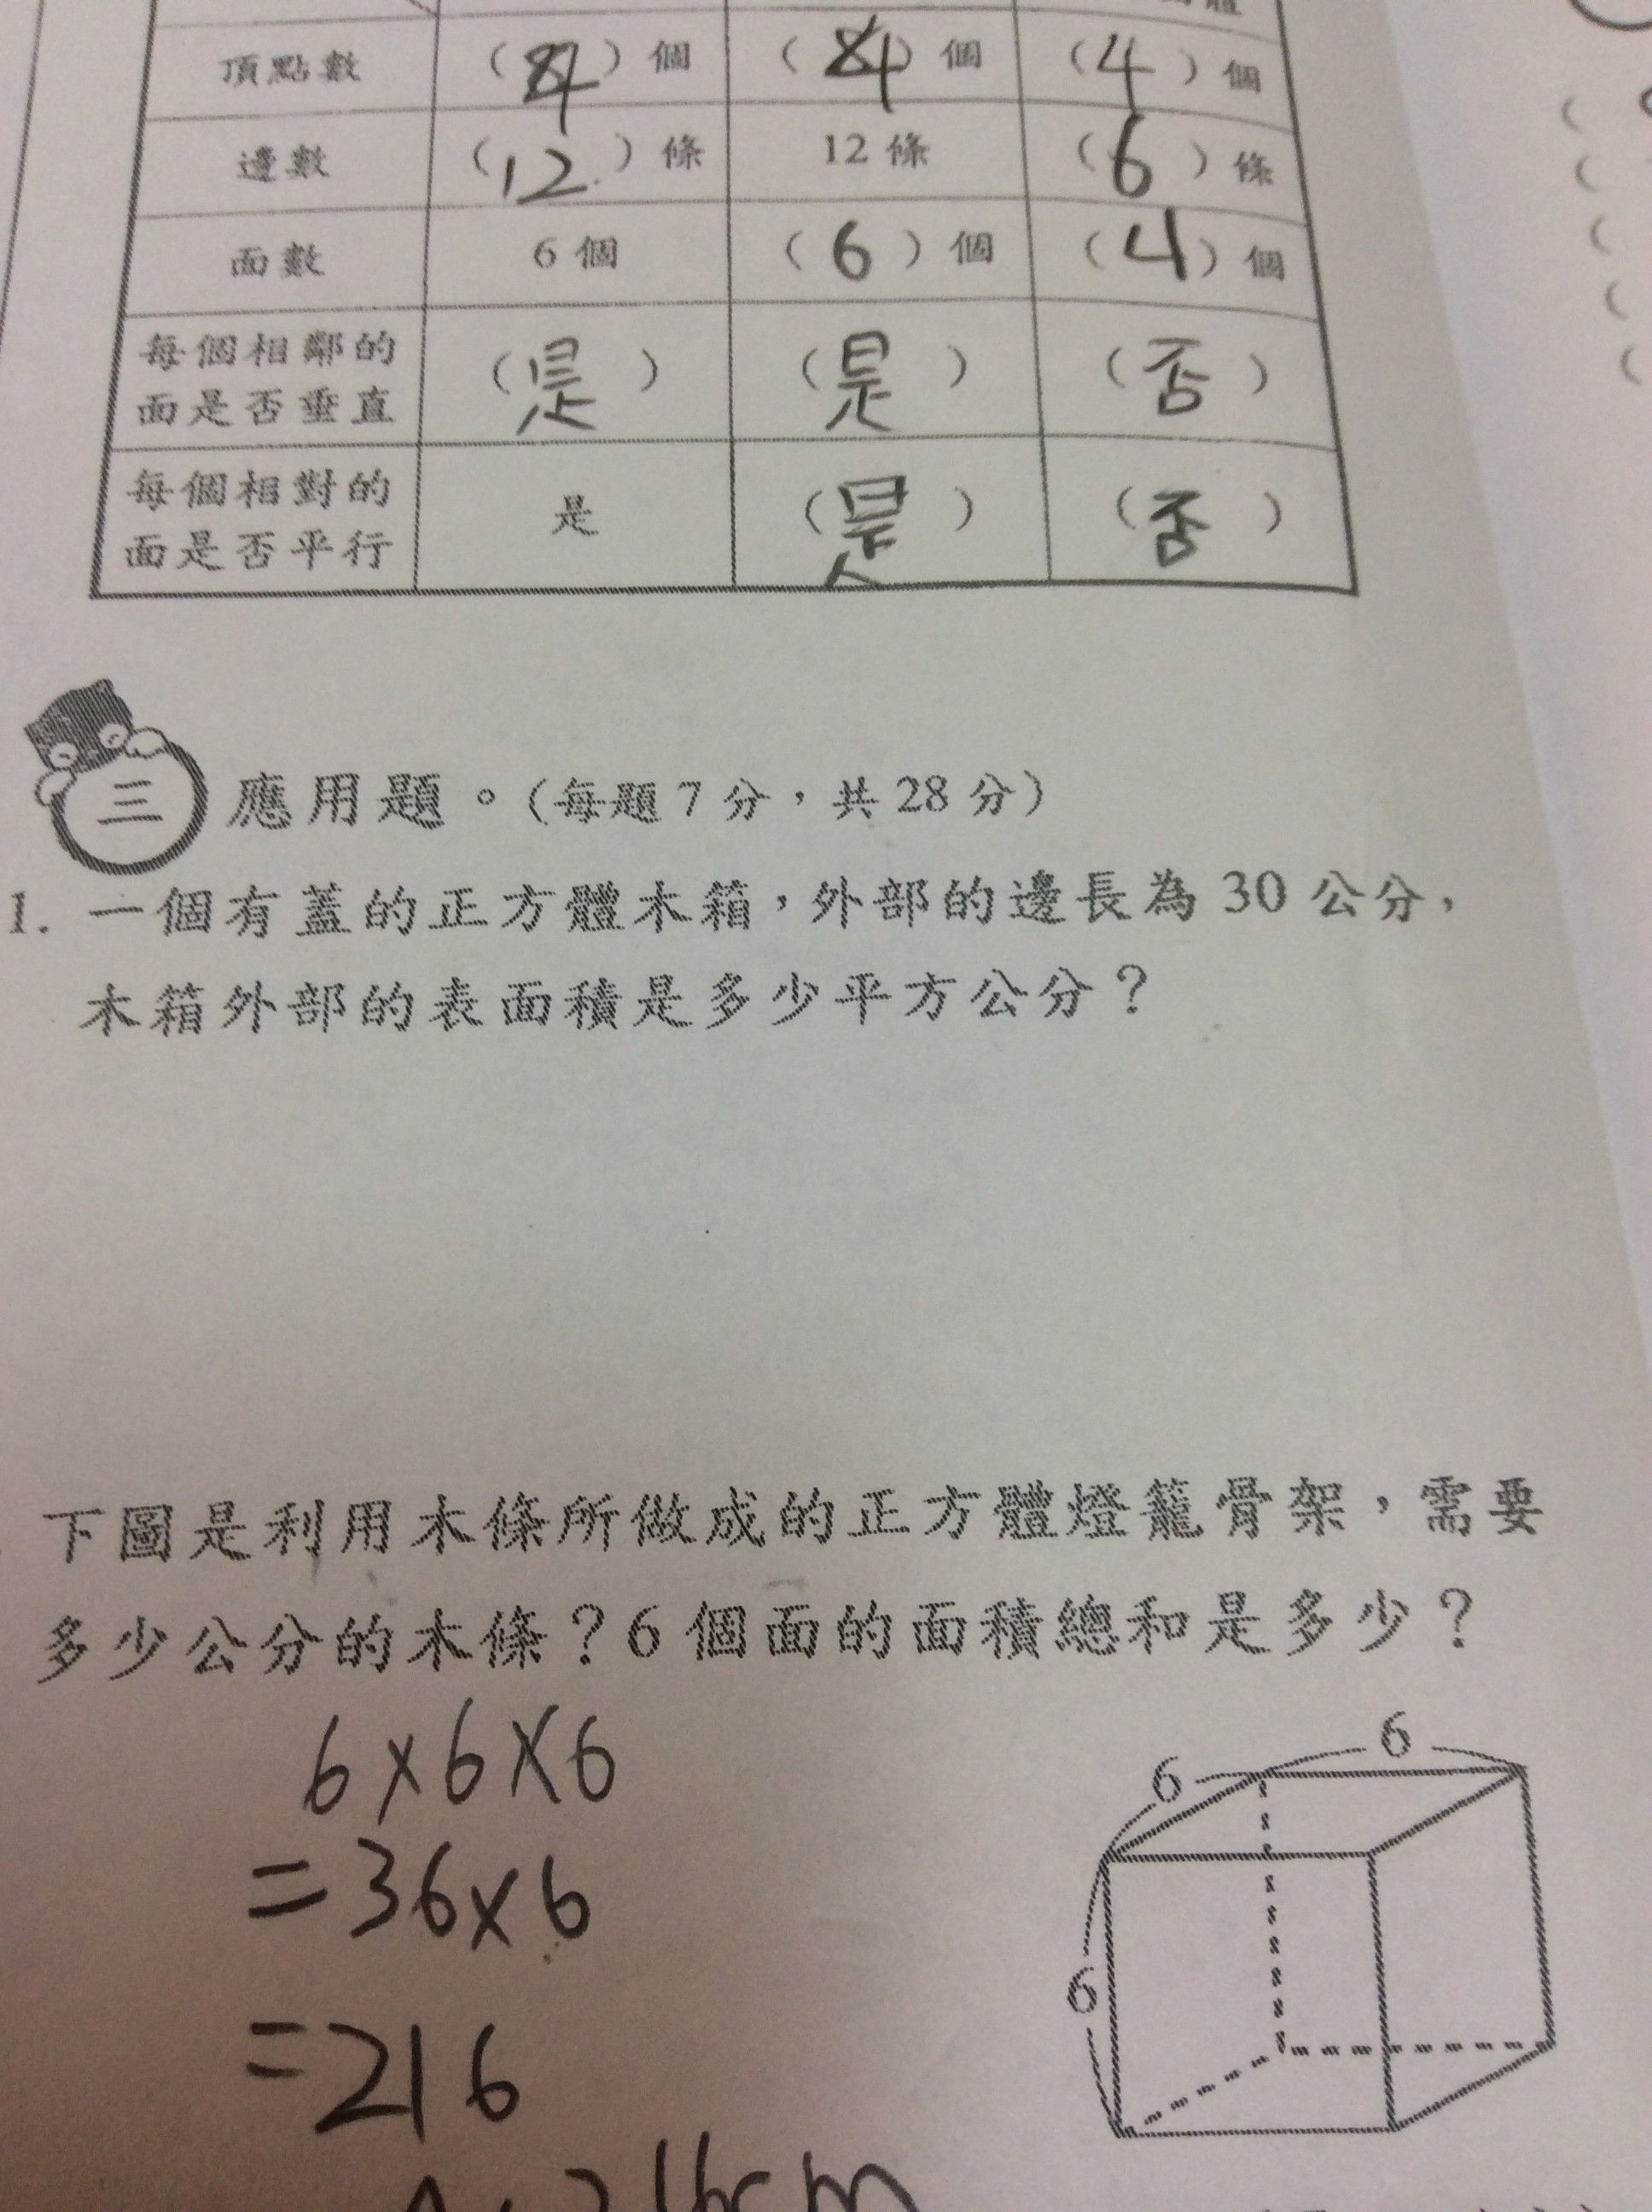 頂點數 ( ) 個 ( ) 個 ( 4 ) 個
邊數 ( 12 ) 條 12 條 ( 6 ) 條
面數 6 個 ( 6 ) 個 ( 4 ) 個
每個相鄰的
面是否垂直 ( 是 ) ( 是 ) ( 否 )
每個相對的
面是否平行 是 ( 是 ) ( 否 )
三 應用題。(每題 7 分，共 28 分)
1. 一個有蓋的正方體木箱，外部的邊長為 30 公分，
木箱外部的表面積是多少平方公分？
下圖是利用木條所做成的正方體燈籠骨架，需要
多少公分的木條？6 個面的面積總和是多少？
6×6×6
=36×6
=216
6
6
6
216cm